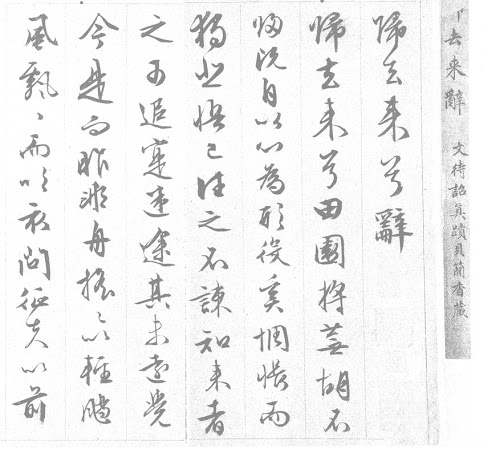 去来辭 文待詔真蹟貝簡香藏
歸去来兮辭
歸去来兮田園將蕪胡不
歸既自以心為形役奚惆悵而
獨悲悟已往之不諫知来者
之可追寔迷途其未遠覺
今是而昨非舟摇〻以輕颺
風飄〻而吹衣問征夫以前